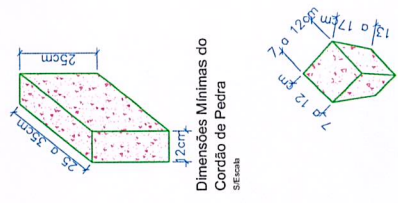 25cm
25 a 35cm
12cm
Dimensões Mínimas do
Cordão de Pedra
S/Escala
7 a 12cm
13 a 17cm
7 a 12 cm